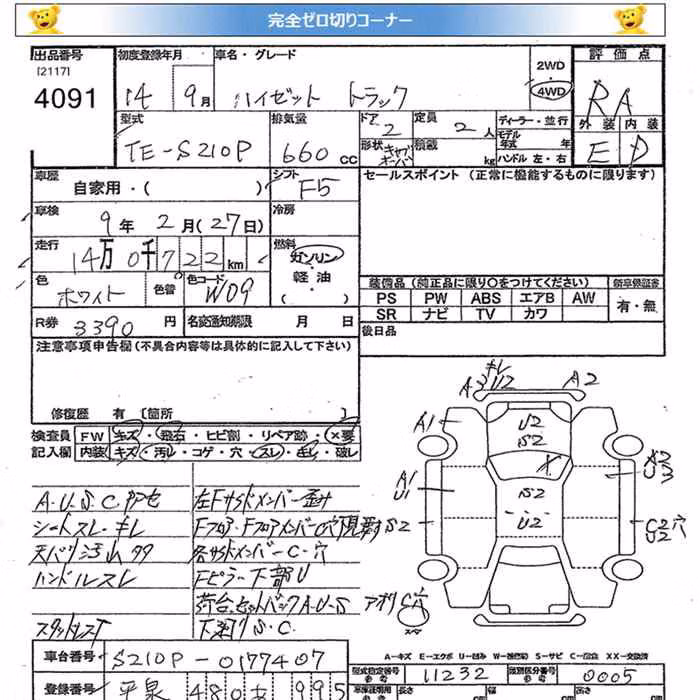 完全ゼロ切りコーナー
出品番号
[2117]
4091
初度登録年月
14 9月
車名・グレード
ハイゼット トラック
2WD
・
4WD
評価点
RA
外装 内装
E D
型式
TE-S210P
排気量
660 cc
ドア
2
定員
2 人
形状
積載
kg
ディーラー・並行
モデル
年式 年
ハンドル 左・右
車歴
自家用・( )
シフト
F5
セールスポイント (正常に機能するものに限ります)
車検
9 年 2 月(27日)
冷房
走行
14万 0千722 km
燃料
ガソリン
・
軽油
( )
色
ホワイト
色替
色コード
W09
装備品 (純正品に限り○をつけてください)
新車保証書
PS PW ABS エアB AW
有・無
SR ナビ TV カワ
R券
8390 円
名変通知期限 月 日
後日品
注意事項申告欄 (不具合内容等は具体的に記入して下さい)
修復歴 有 [箇所 ]
検査員
記入欄
FW キズ・飛石・ヒビ割・リペア跡・×要
内装 キズ・汚レ・コゲ・穴・スレ・切レ・破レ
A・U・S・C
シートスレ・キレ
天バリ汚レ
ハンドルスレ
スタッドレス
左Fサイドメンバー歪み
各サイドメンバーC・穴
Fピラー下部U
荷台セットバックA・U・S
下廻りS・C
キレ
A3 U2 A2
A1
U2
S2
X
X2
U3
A1
U1
S2
S2
U2
C2穴
U2
アオリ C穴
スペア
A－キズ E－エクボ U－凹み W－(補修跡) S－サビ C－腐食 XX－交換済
車台番号
S210P-0177407
型式指定番号
参考
11232
類別区分番号
参考
0005
登録番号
平泉 480 995
長さ
幅
高さ